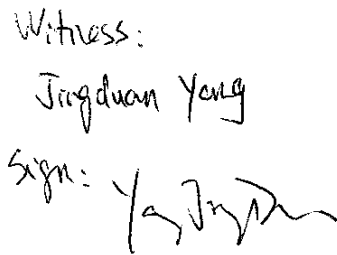 Witness:
Jingduan Yang
Sign:
Yang Jing Duan